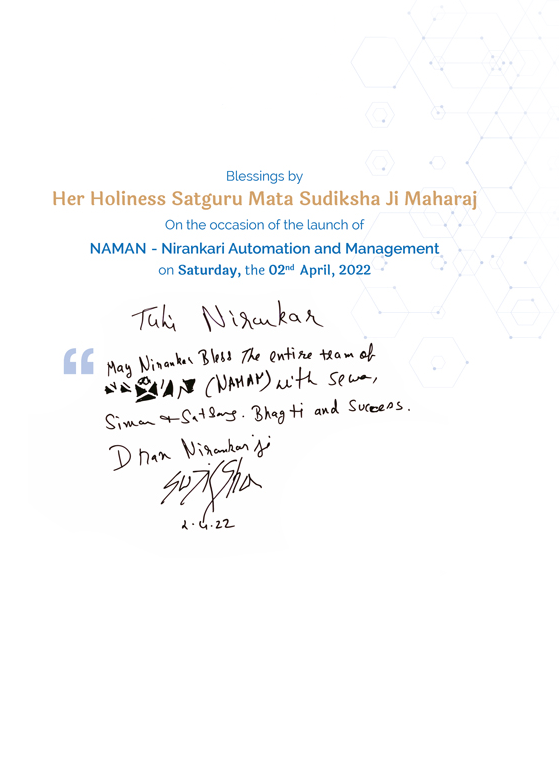 Blessings by
Her Holiness Satguru Mata Sudiksha Ji Maharaj
On the occasion of the launch of
NAMAN - Nirankari Automation and Management
on Saturday, the 02nd April, 2022
Tuhi Nirankar
“
May Nirankar Bless The entire team of
(NAMAN) with Sewa,
Simran + Satsang. Bhagti and Success.
Dhan Nirankar ji
Sudiksha
2.4.22